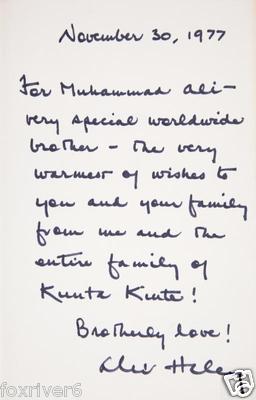 November 30, 1977
For Muhammad Ali—
very special worldwide
brother – the very
warmest of wishes to
you and your family
from me and the
entire family of
Kunta Kinte!
Brotherly love!
Alex Haley
foxriver6
eBay